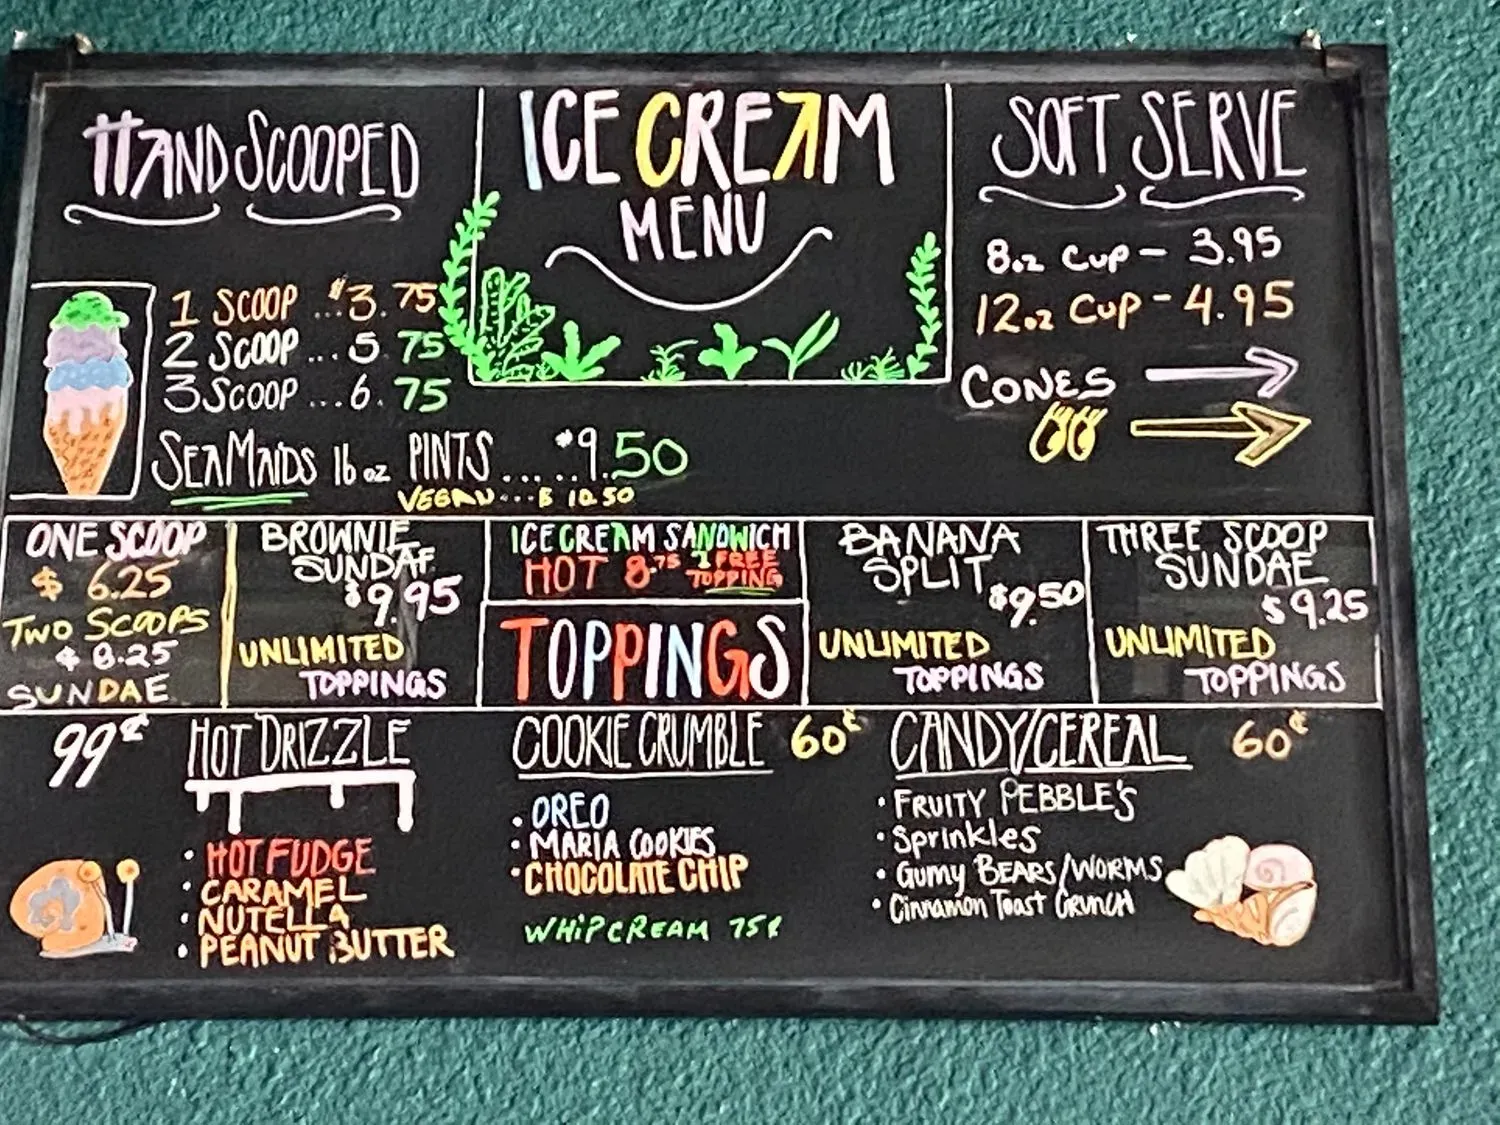 ICE CREAM
MENU
HAND SCOOPED
1 SCOOP ...$3.75
2 SCOOP ...5 75
3 SCOOP ...6.75
SEAMAIDS 16 oz PINTS....$9.50
VEGAN...$ 10.50
SOFT SERVE
8oz CUP - 3.95
12oz CUP - 4.95
CONES
ONE SCOOP
$ 6.25
TWO SCOOPS
$ 8.25
SUNDAE
BROWNIE
SUNDAE
$9.95
UNLIMITED
TOPPINGS
ICE CREAM SANDWICH
HOT 8.75 1 FREE
TOPPING
TOPPINGS
BANANA
SPLIT
$9.50
UNLIMITED
TOPPINGS
THREE SCOOP
SUNDAE
$9.25
UNLIMITED
TOPPINGS
99¢ HOT DRIZZLE
• HOT FUDGE
• CARAMEL
• NUTELLA
• PEANUT BUTTER
COOKIE CRUMBLE 60¢
• OREO
• MARIA COOKIES
• CHOCOLATE CHIP
WHIPCREAM 75¢
CANDY/CEREAL 60¢
• FRUITY PEBBLE'S
• Sprinkles
• Gumy BEARS/WORMS
• Cinnamon Toast CRUNCH